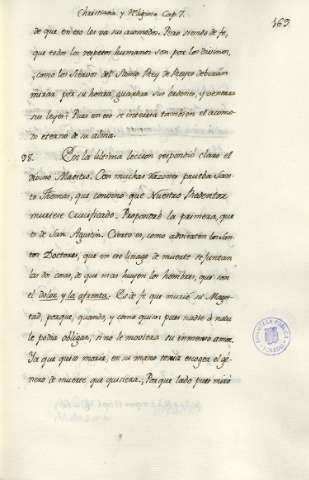 Christiana, y Religiosa Cap. 7.
163
de que en ello les va sus acomodos. Pues siendo de fe,
que todos los respetos humanos son por los divinos,
como los Siervos del Santo Rey de Reyes debieran
mirar por su honra, guardar sus ordenes, y venerar
sus leyes? Pues en eso se interesa tambien el acomo
do eterno de su alma.
98. En la ultima leccion respondió claro el
divino Maestro. Con muchas razones prueba San
to Thomas, que convino que Nuestro Redentor
muriese Crucificado. Propondré la primera, que
es de San Agustin. Cierto es, como advierten los San
tos Doctores, que en ese linage de muerte se juntan
las dos cosas, de que mas huyen los hombres, que son
el dolor, y la afrenta: Es de fe que murió su Mages
tad, porque, quando, y como quiso; pues nadie à nada
le podia obligar, si no le moviera su inmenso amor.
Ya que quiso morir, en su mano tenia escoger el gé
nero de muerte que quisiera. ¿Porque dado pues murió